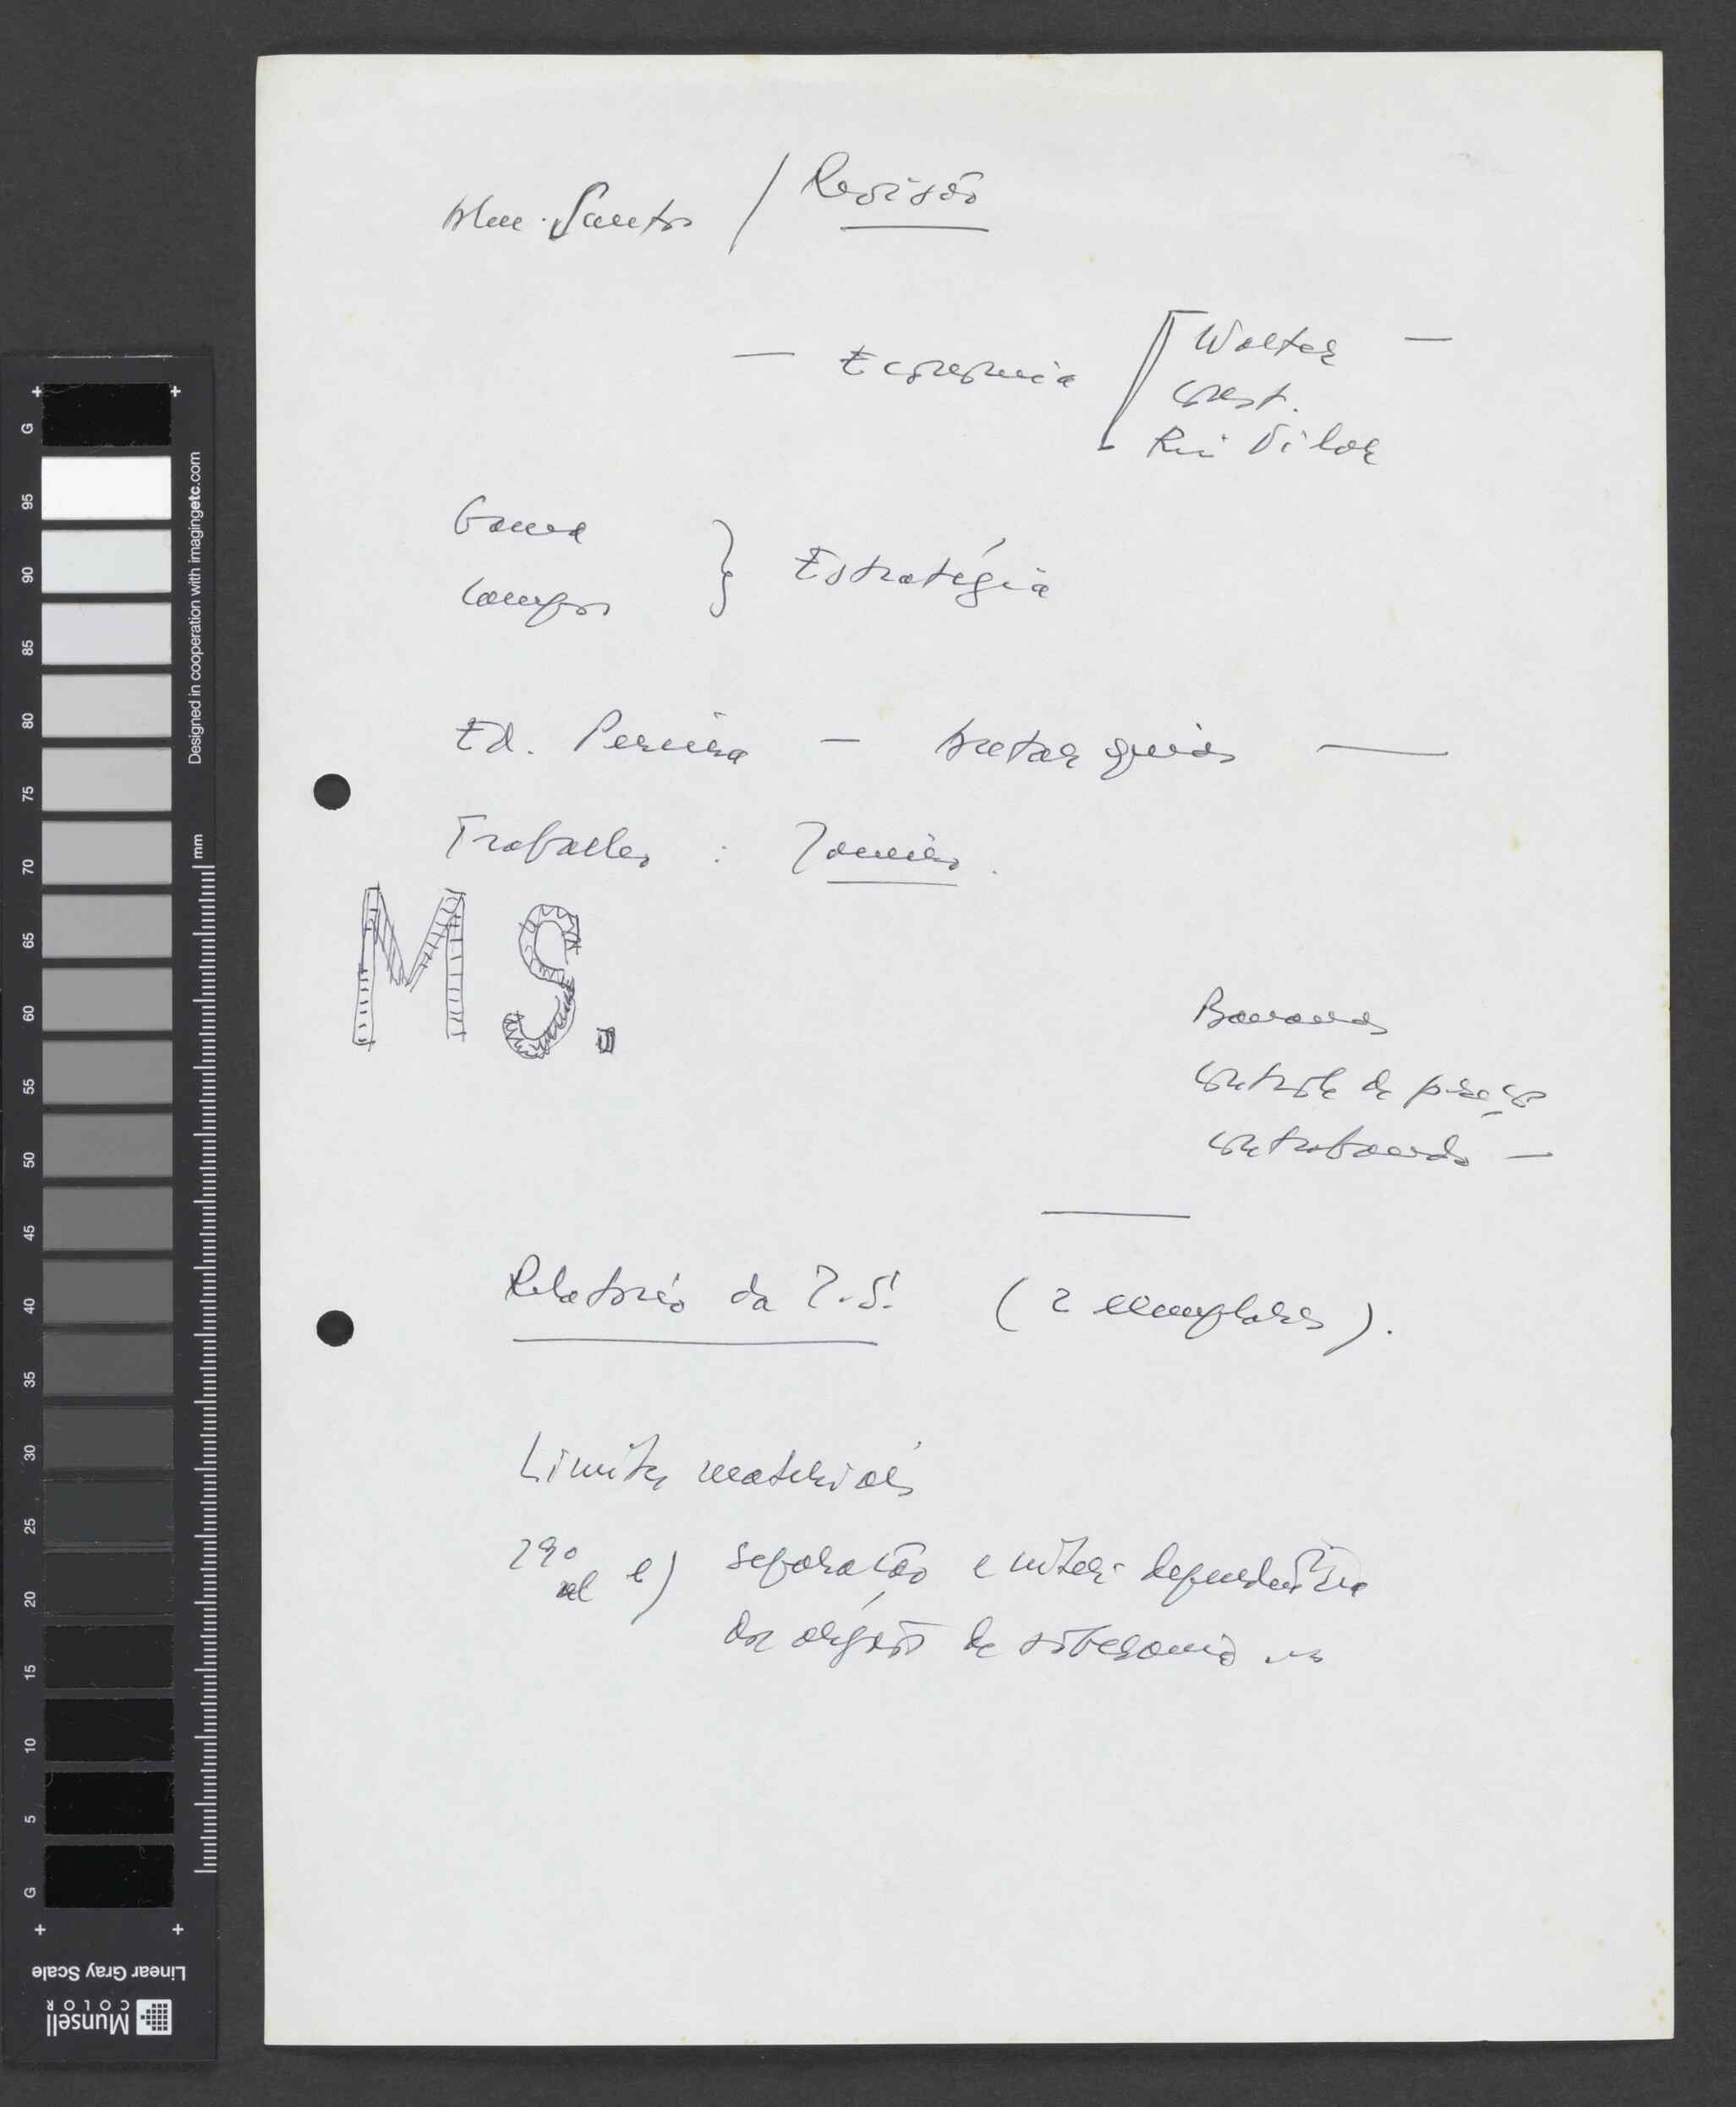 Alm. Santos / Revisão
— Economia
Walter —
Const.
Rui Vilar
Gama
Campos
} Estratégia
Ed. Pereira — Autarquias —
Trabalho :
M S.
Bananas
controle de preços
contrabando —
Relatório da I.S. (2 exemplares).
Limites materiais
290
al e) separação e inter-dependência
dos orgãos de soberania
G 95 90 85 80 75 70 65 60 55 50 45 40 35 30 25 20 15 10 5 G
Designed in cooperation with imagingetc.com
mm
Linear Gray Scale
Munsell
COLOR